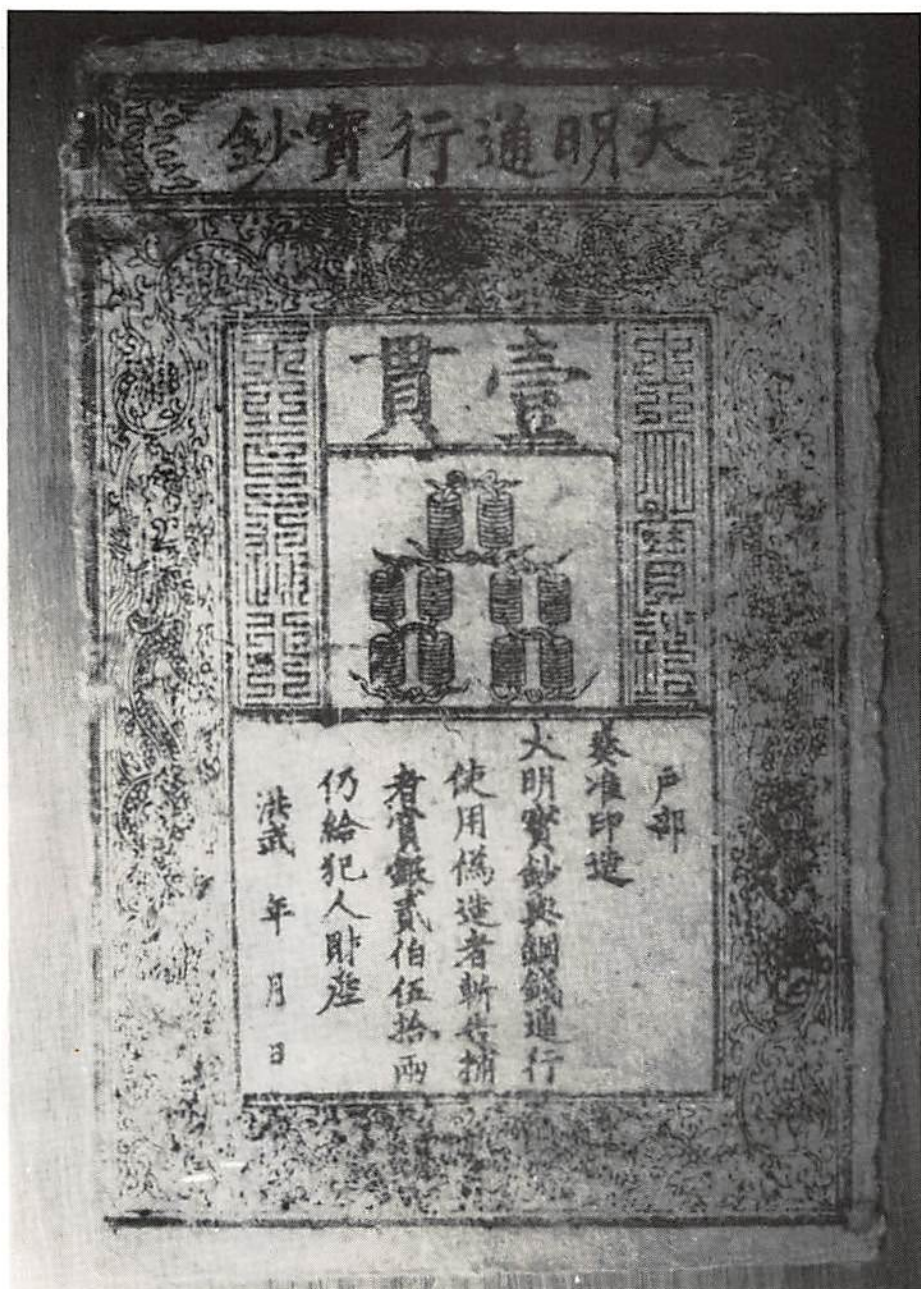 大明通行寶鈔
壹貫
大明寶鈔
天下通行
户部
奏准印造
大明寶鈔與銅錢通行
使用僞造者斬告捕
者賞銀貳伯伍拾兩
仍給犯人財產
洪武 年 月 日